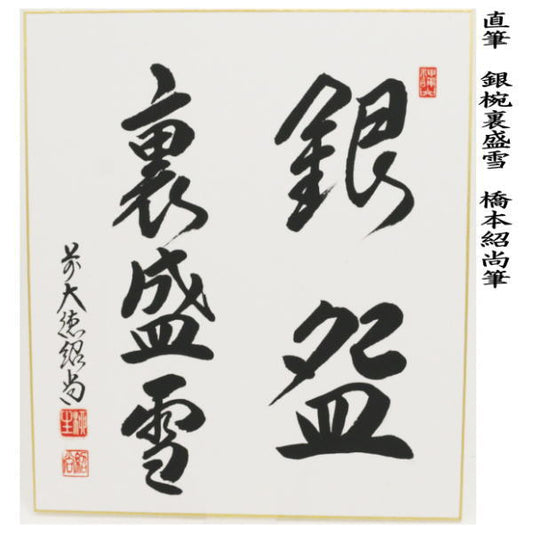 直筆 銀椀裏盛雪 橋本紹尚筆
銀盌
裏盛雪
前大徳紹尚